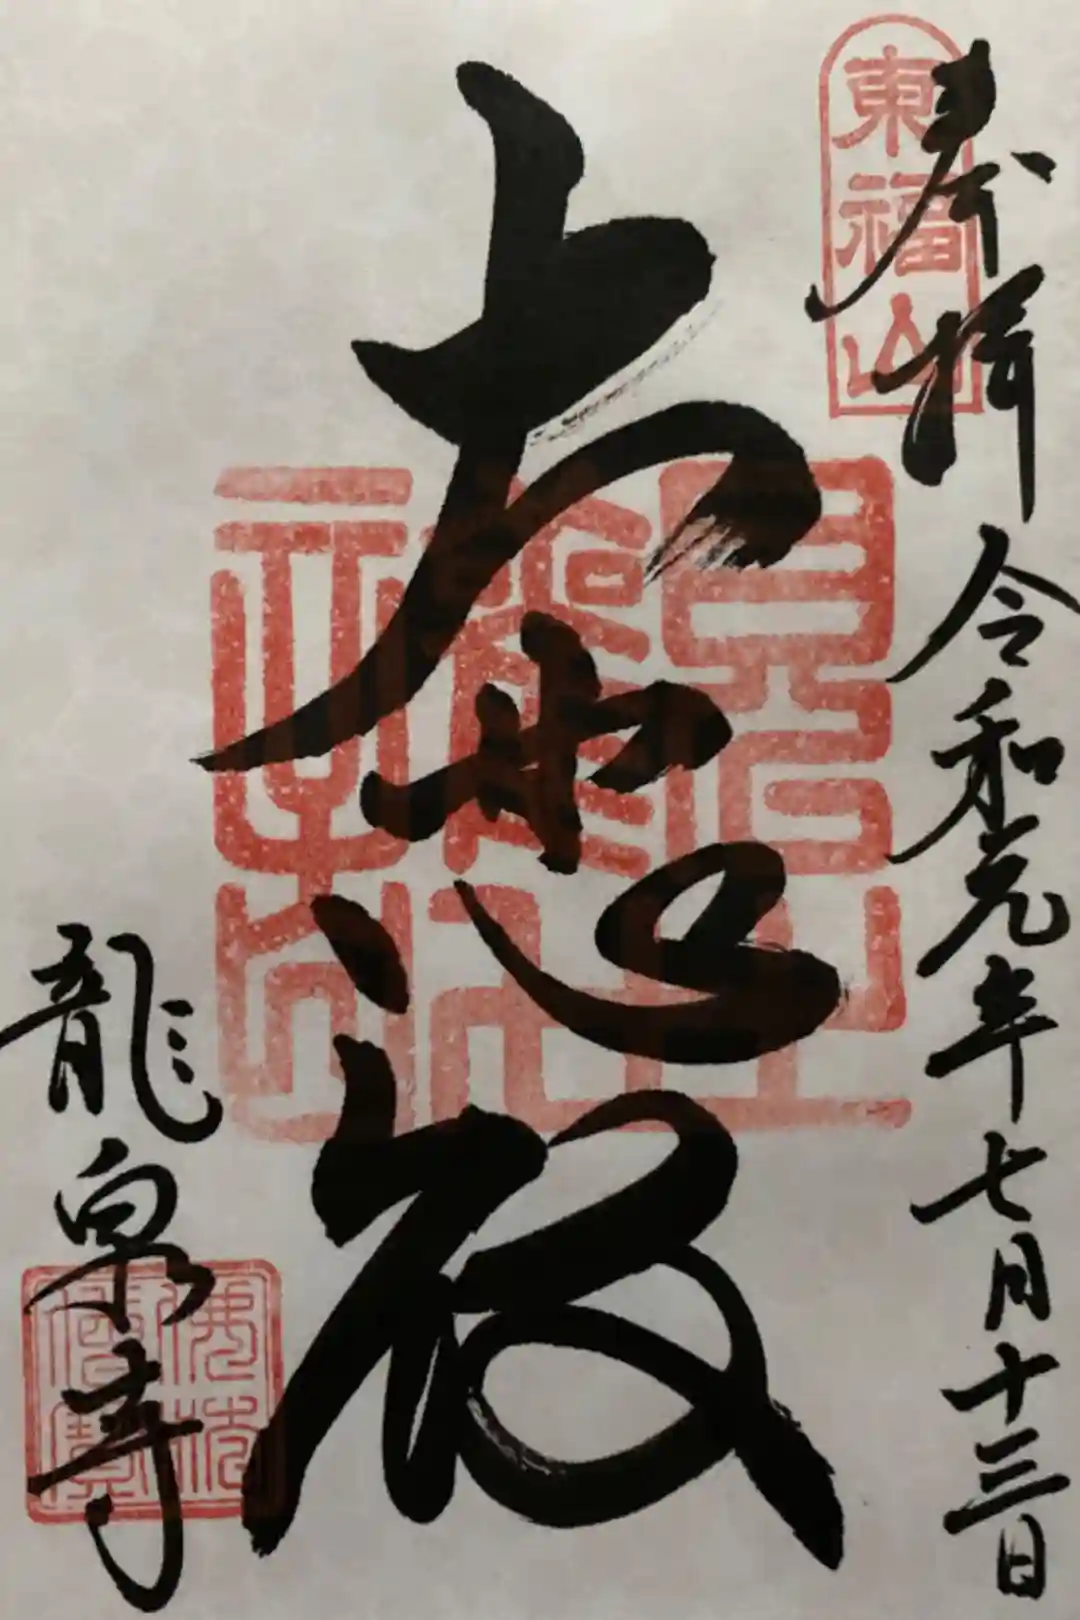 東福山
奉拝 令和元年七月十三日
大悲殿
龍泉寺
佛法僧寶